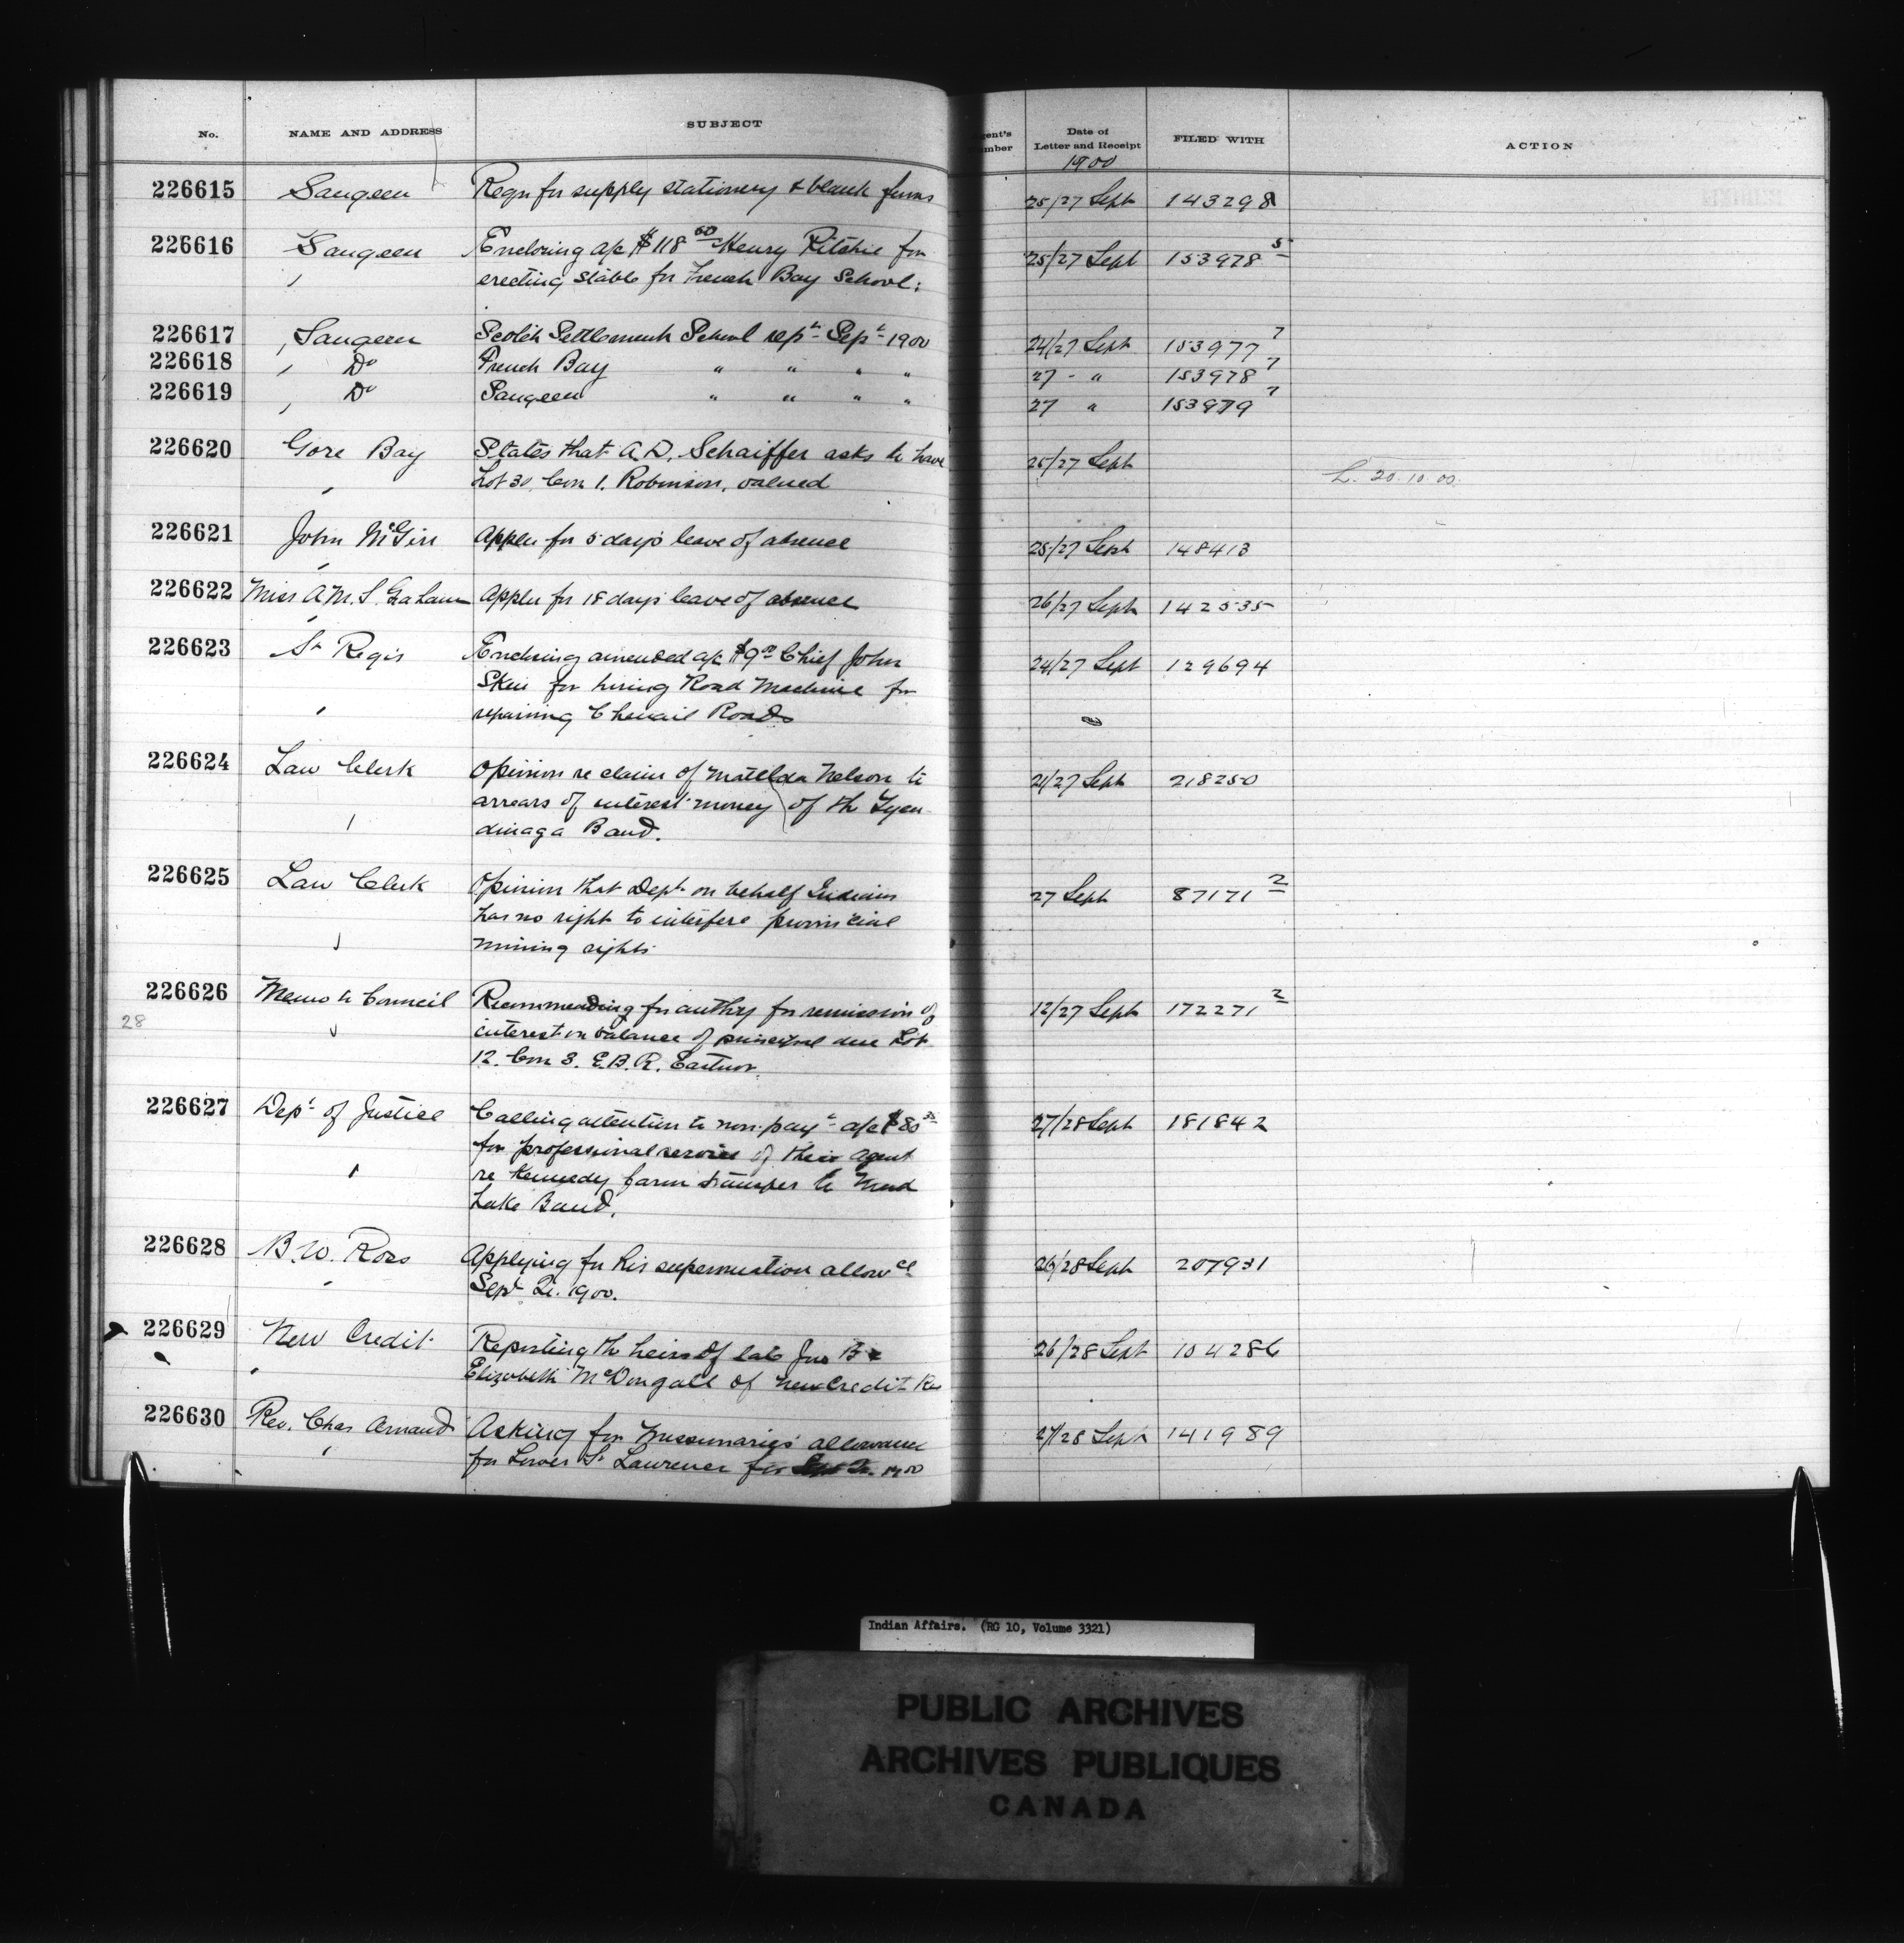 No. NAME AND ADDRESS SUBJECT Agent's Number Date of Letter and Receipt FILED WITH ACTION
1900
226615 Saugeen Reqn for supply stationery & blank forms 25/27 Sept 143298
226616 Saugeen Enclosing a/c $118 60 Henry Ritchie for 25/27 Sept 153978 5
erecting stable for French Bay School.
226617 Saugeen Scotch Settlement School rept Sept 1900 24/27 Sept 153977 7
226618 Do French Bay " " " " 27 - " 153978 7
226619 Do Saugeen " " " " 27 " 153979 7
226620 Gore Bay States that A.D. Schaiffer asks to have 25/27 Sept
Lot 30, Con 1. Robinson, valued L. 20.10.00.
226621 John McGirr Applen for 5 days leave of absence 25/27 Sept 148413
226622 Miss A.M.S. Graham Applen for 18 days leave of absence 26/27 Sept 142535
226623 St Regis Enclosing amended a/c $9 00 Chief John 24/27 Sept 129694
for hiring Road Machine for
repairing Chenail Roads
226624 Law Clerk Opinion re claim of Matilda Nelson to 21/27 Sept 218250
arrears of interest money of the Tyen-
dinaga Band.
226625 Law Clerk Opinion that Dept on behalf Indians 27 Sept 87171 2
has no right to interfere provincial
mining rights
226626 Memo to Council Recommending for authy for remission of 12/27 Sept 172271 2
28 interest on balance of principal due Lot
12. Con 3. E.B.R. Eastnor
226627 Dept of Justice Calling attention to non-payt a/c $80 27/28 Sept 181842
for professional services of their agent
re Kennedy farm transfer to Mud
Lake Band.
226628 B.W. Ross Applying for his superannuation allowce 26/28 Sept 207931
Sept Qr. 1900.
226629 New Credit Reporting the heirs of late Jno B & 26/28 Sept 104286
Elizabeth McDougall of New Credit Res
226630 Rev. Chas Arnaud Asking for Missionaries' allowance 27/28 Sept 141989
for Lower St Lawrence for Sept Qr. 1900
Indian Affairs. (RG 10, Volume 3321)
PUBLIC ARCHIVES
ARCHIVES PUBLIQUES
CANADA